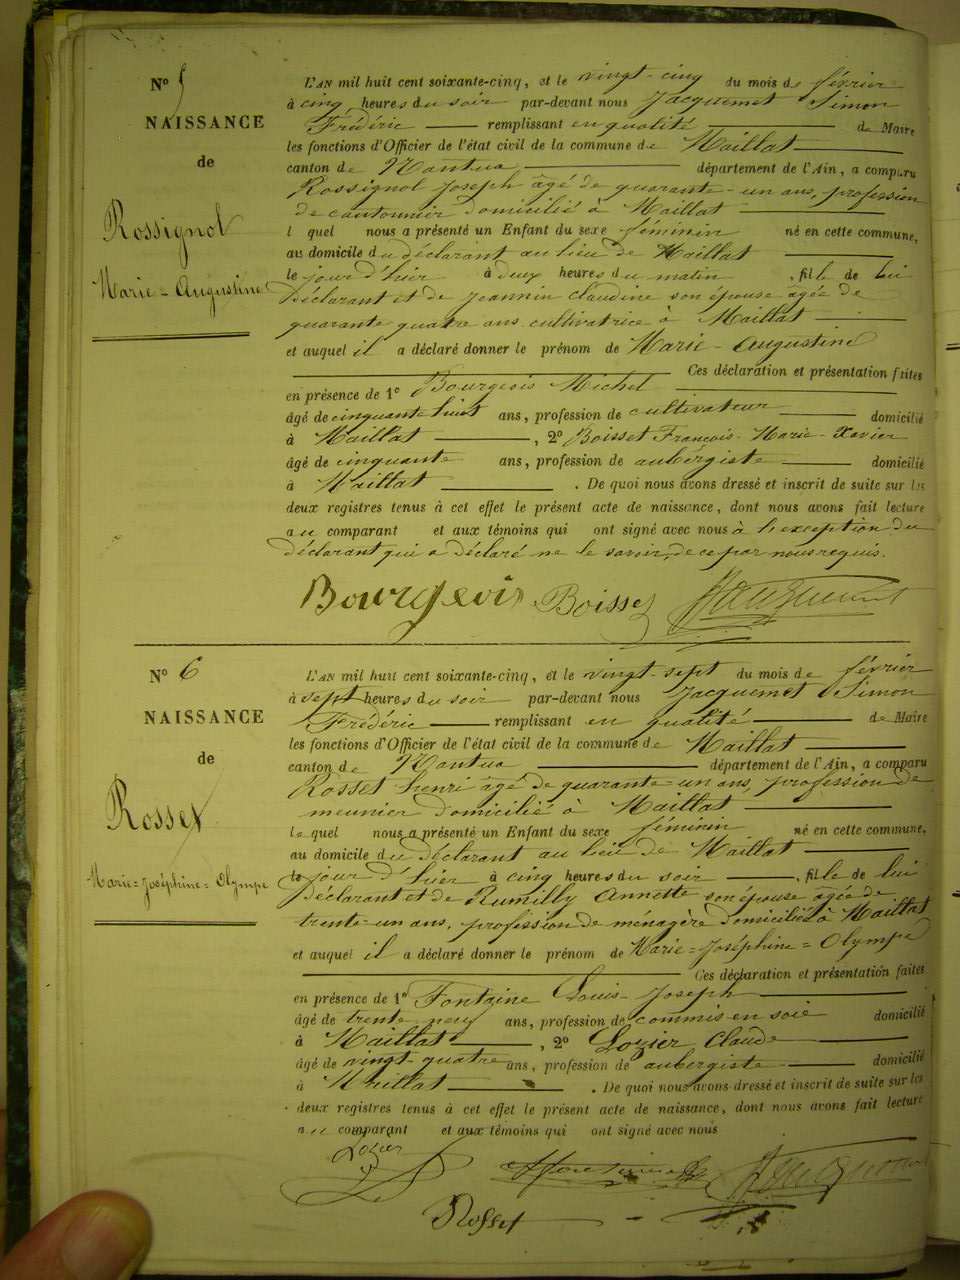 N° 5
NAISSANCE
de
Rossignol
Marie-Augustine
L'AN mil huit cent soixante-cinq, et le vingt-cinq du mois de février
à cinq heures du soir par-devant nous Jacquemet Simon
Frédéric remplissant en qualité de Maire
les fonctions d'Officier de l'état civil de la commune de Maillat
canton de Nantua département de l'Ain, a comparu
Rossignol Joseph âgé de quarante-un ans, profession
de cantonnier domicilié à Maillat
l quel nous a présenté un Enfant du sexe féminin né en cette commune,
au domicile du déclarant au lieu de Maillat
le jour d'hier à deux heures du matin, fille de lui
déclarant et de Jeannin Claudine son épouse âgée de
quarante quatre ans cultivatrice à Maillat
et auquel il a déclaré donner le prénom de Marie-Augustine
Ces déclaration et présentation faites
en présence de 1° Bourgeois Michel
âgé de cinquante huit ans, profession de cultivateur domicilié
à Maillat, 2° Boisset François-Marie-Xavier
âgé de cinquante ans, profession de aubergiste domicilié
à Maillat. De quoi nous avons dressé et inscrit de suite sur les
deux registres tenus à cet effet le présent acte de naissance, dont nous avons fait lecture
au comparant et aux témoins qui ont signé avec nous à l'exception du
déclarant qui a déclaré ne le savoir, de ce par nous requis.
Bourgeois Boisset Jacquemet
N° 6
NAISSANCE
de
Rosset
Marie=Joséphine=Olympe
L'AN mil huit cent soixante-cinq, et le vingt-sept du mois de février
à sept heures du soir par-devant nous Jacquemet Simon
Frédéric remplissant en qualité de Maire
les fonctions d'Officier de l'état civil de la commune de Maillat
canton de Nantua département de l'Ain, a comparu
Rosset henri âgé de quarante=un ans, profession de
meunier domicilié à Maillat
le quel nous a présenté un Enfant du sexe féminin né en cette commune,
au domicile du déclarant au lieu de Maillat
le jour d'hier à cinq heures du soir, fille de lui
déclarant et de Rumilly Annette son épouse âgée de
trente=un ans, profession de ménagère domiciliée à Maillat
et auquel il a déclaré donner le prénom de Marie=Joséphine=Olympe
Ces déclaration et présentation faites
en présence de 1° Fontaine Louis-Joseph
âgé de trente neuf ans, profession de commis en soie domicilié
à Maillat, 2° Lozier Claude
âgé de vingt-quatre ans, profession de aubergiste domicilié
à Maillat. De quoi nous avons dressé et inscrit de suite sur les
deux registres tenus à cet effet le présent acte de naissance, dont nous avons fait lecture
au comparant et aux témoins qui ont signé avec nous
Lozier Fontaine Jacquemet
Rosset